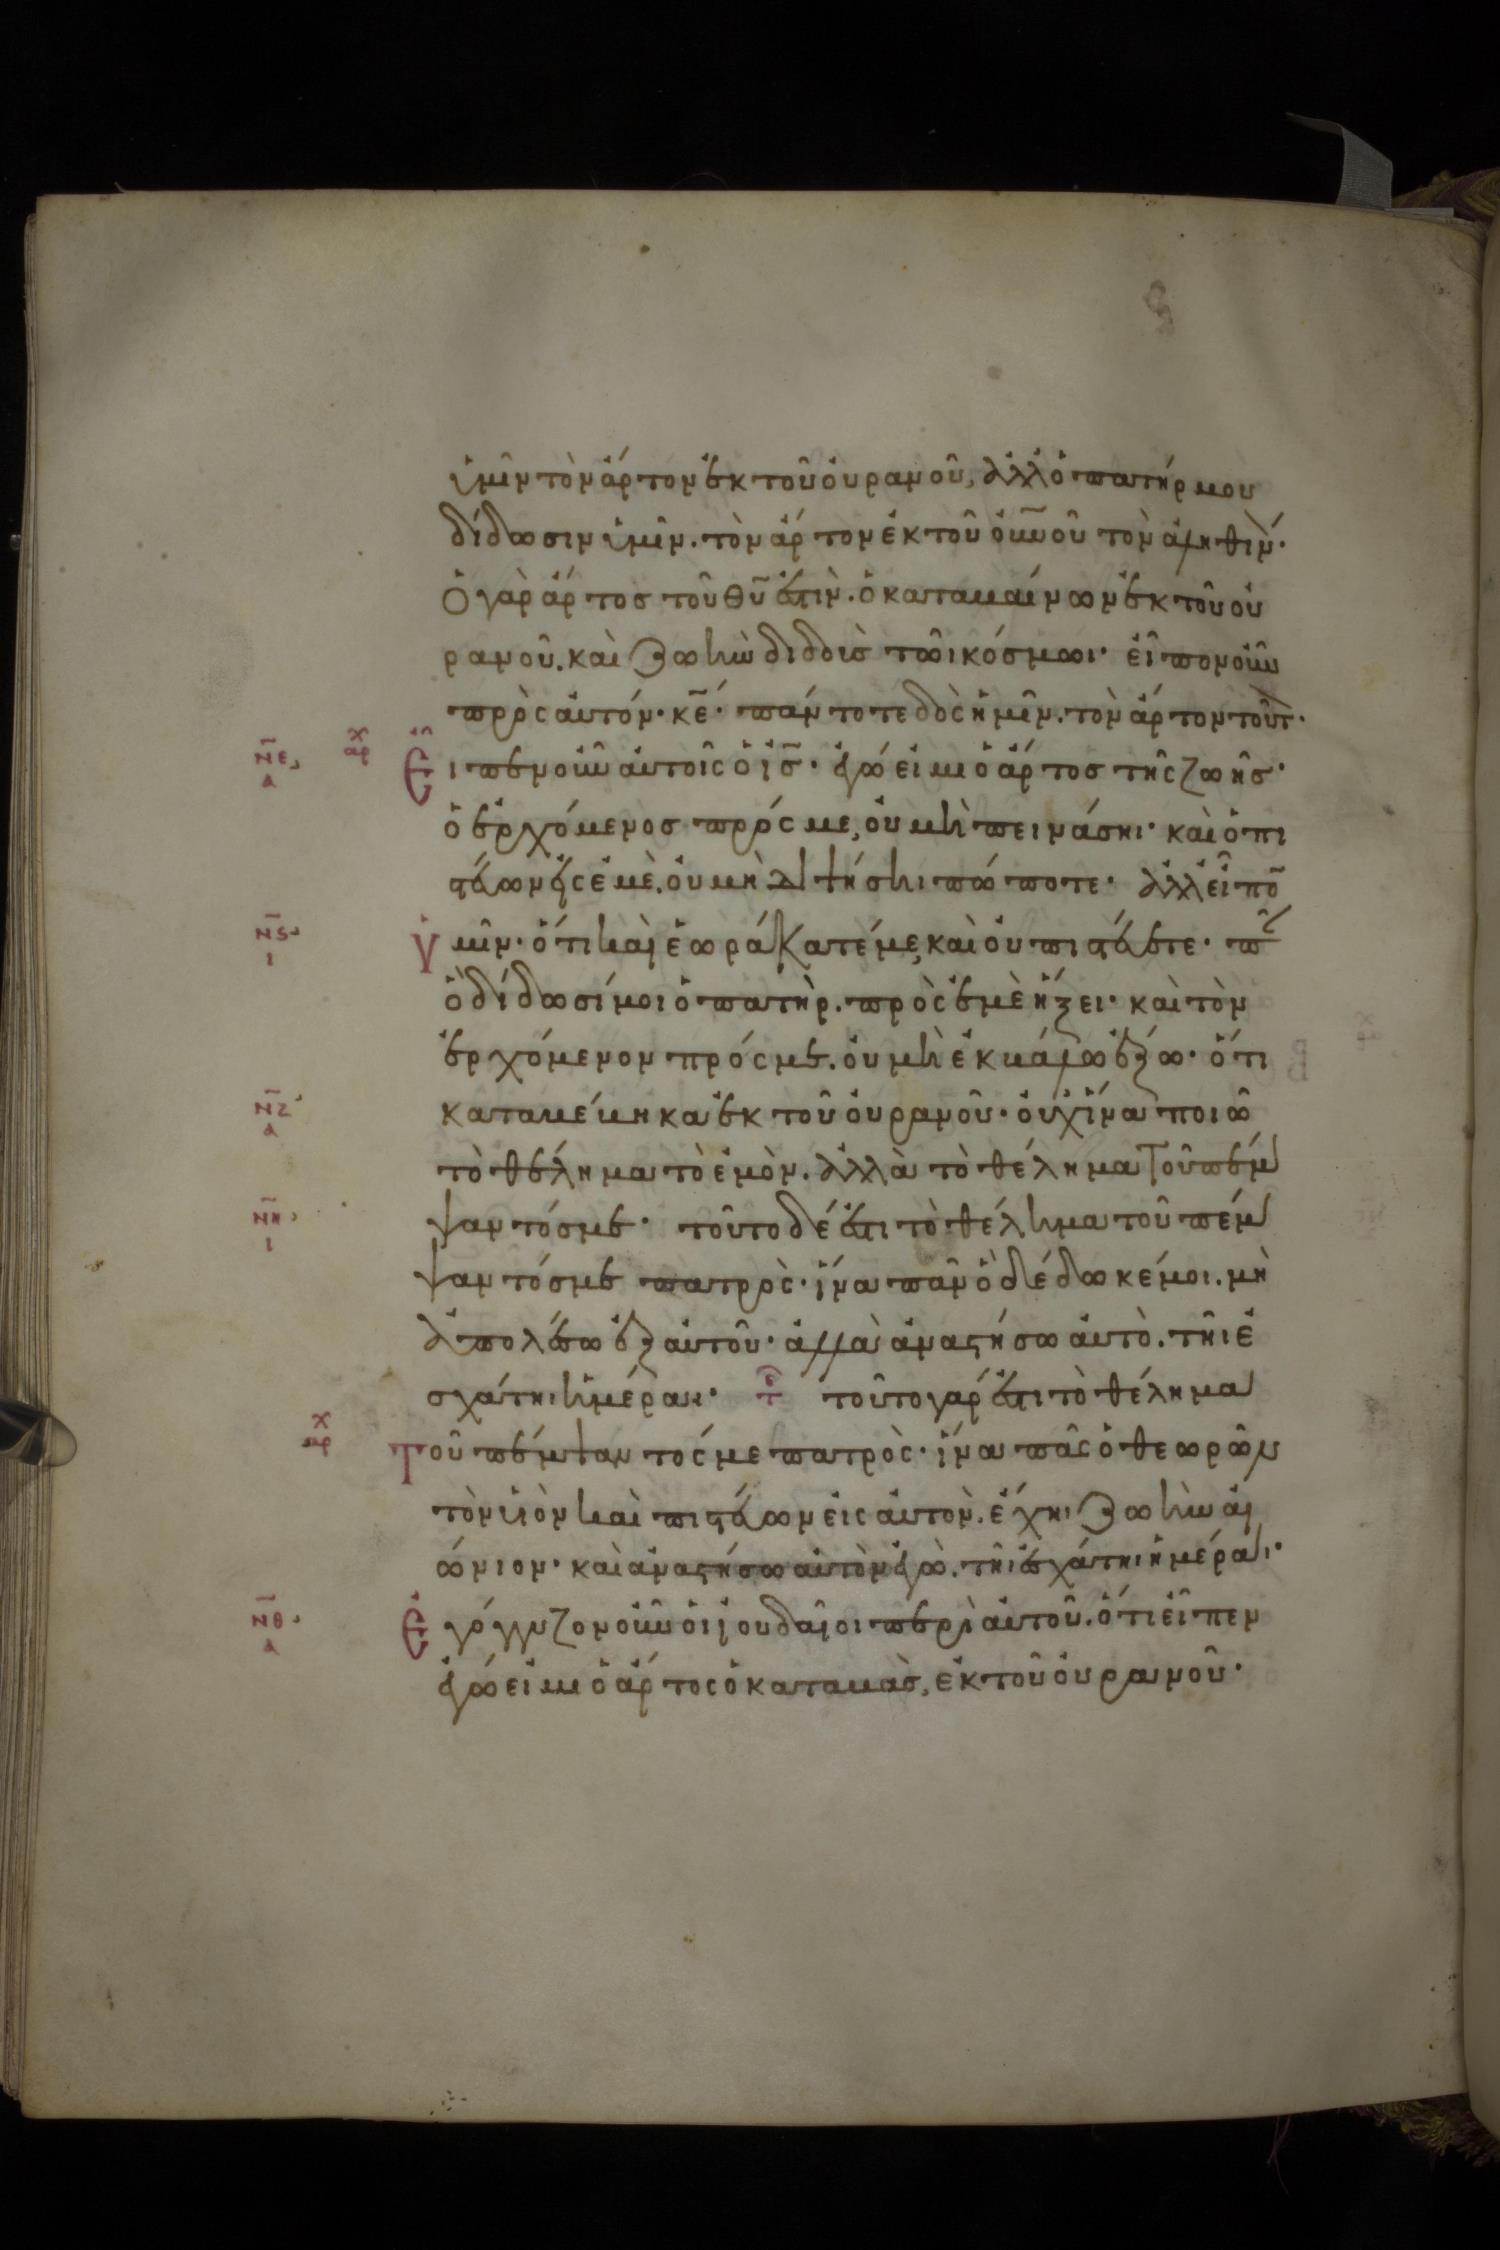 ὑμῖν τὸν ἄρτον ἐκ τοῦ οὐρανοῦ, ἀλλ ὁ πατήρ μου
δίδωσιν ὑμῖν. τὸν ἄρτον ἐκ τοῦ οὐνοῦ τὸν ἀληθινόν·
Ὁ γὰρ ἄρτος τοῦ θυ ἐστιν. ὁ καταβαίνων ἐκ τοῦ οὐ
ρανοῦ. καὶ ζωὴν διδοὺς τῶι κόσμωι· εἶπον οὖν
πρὸς αὐτόν· κε· πάντοτε δὸς ἡμῖν. τὸν ἄρτον τοῦτ·
νε α χ αρ Εἶπεν οὖν αὐτοῖς ὁ ις· ἐγώ εἰμι ὁ ἄρτος τῆς ζωῆς·
ὁ ἐρχόμενος πρός με, οὐ μὴ πεινάσηι· καὶ ὁ πι
στεύων εἰς ἐμὲ. οὐ μὴ διψήσηι πώποτε· ἀλλ εἶπο
νς ι Ὑμῖν· ὅτι καὶ ἑωράκατέ με, καὶ οὐ πιστεύετε· π
ὃ δίδωσί μοι ὁ πατὴρ. πρὸς ἐμὲ ἥξει· καὶ τὸν
ἐρχόμενον πρός με. οὐ μὴ ἐκβάλω ἔξω· ὅτι
νζ α καταβέβηκα ἐκ τοῦ οὐρανοῦ· οὐχ ἵνα ποιῶ
τὸ θέλημα τὸ ἐμὸν. ἀλλὰ τὸ θέλημα τοῦ πέμ
νη ι ψαντός με· τοῦτο δέ ἐστι τὸ θέλημα τοῦ πέμ
ψαντός με πατρὸς· ἵνα πᾶν ὃ δέδωκέ μοι. μὴ
ἀπολέσω ἐξ αὐτοῦ· ἀλλὰ ἀναστήσω αὐτὸ. τῆι ἐ
σχάτηι ἡμέραι· τε τοῦτο γάρ ἐστι τὸ θέλημα
χ αρ Τοῦ πέμψαντός με πατρὸς· ἵνα πᾶς ὁ θεωρῶν
τὸν υἱὸν καὶ πιστεύων εἰς αὐτὸν. ἔχηι ζωὴν αἰ
ώνιον· καὶ ἀναστήσω αὐτὸν ἐγὼ. τῆι ἐσχάτηι ἡμέραι·
νθ α Ἐγόγγυζον οὖν οἱ ἰουδαῖοι περὶ αὐτοῦ. ὅτι εἶπεν
ἐγώ εἰμι ὁ ἄρτος ὁ καταβὰς, ἐκ τοῦ οὐρανοῦ·